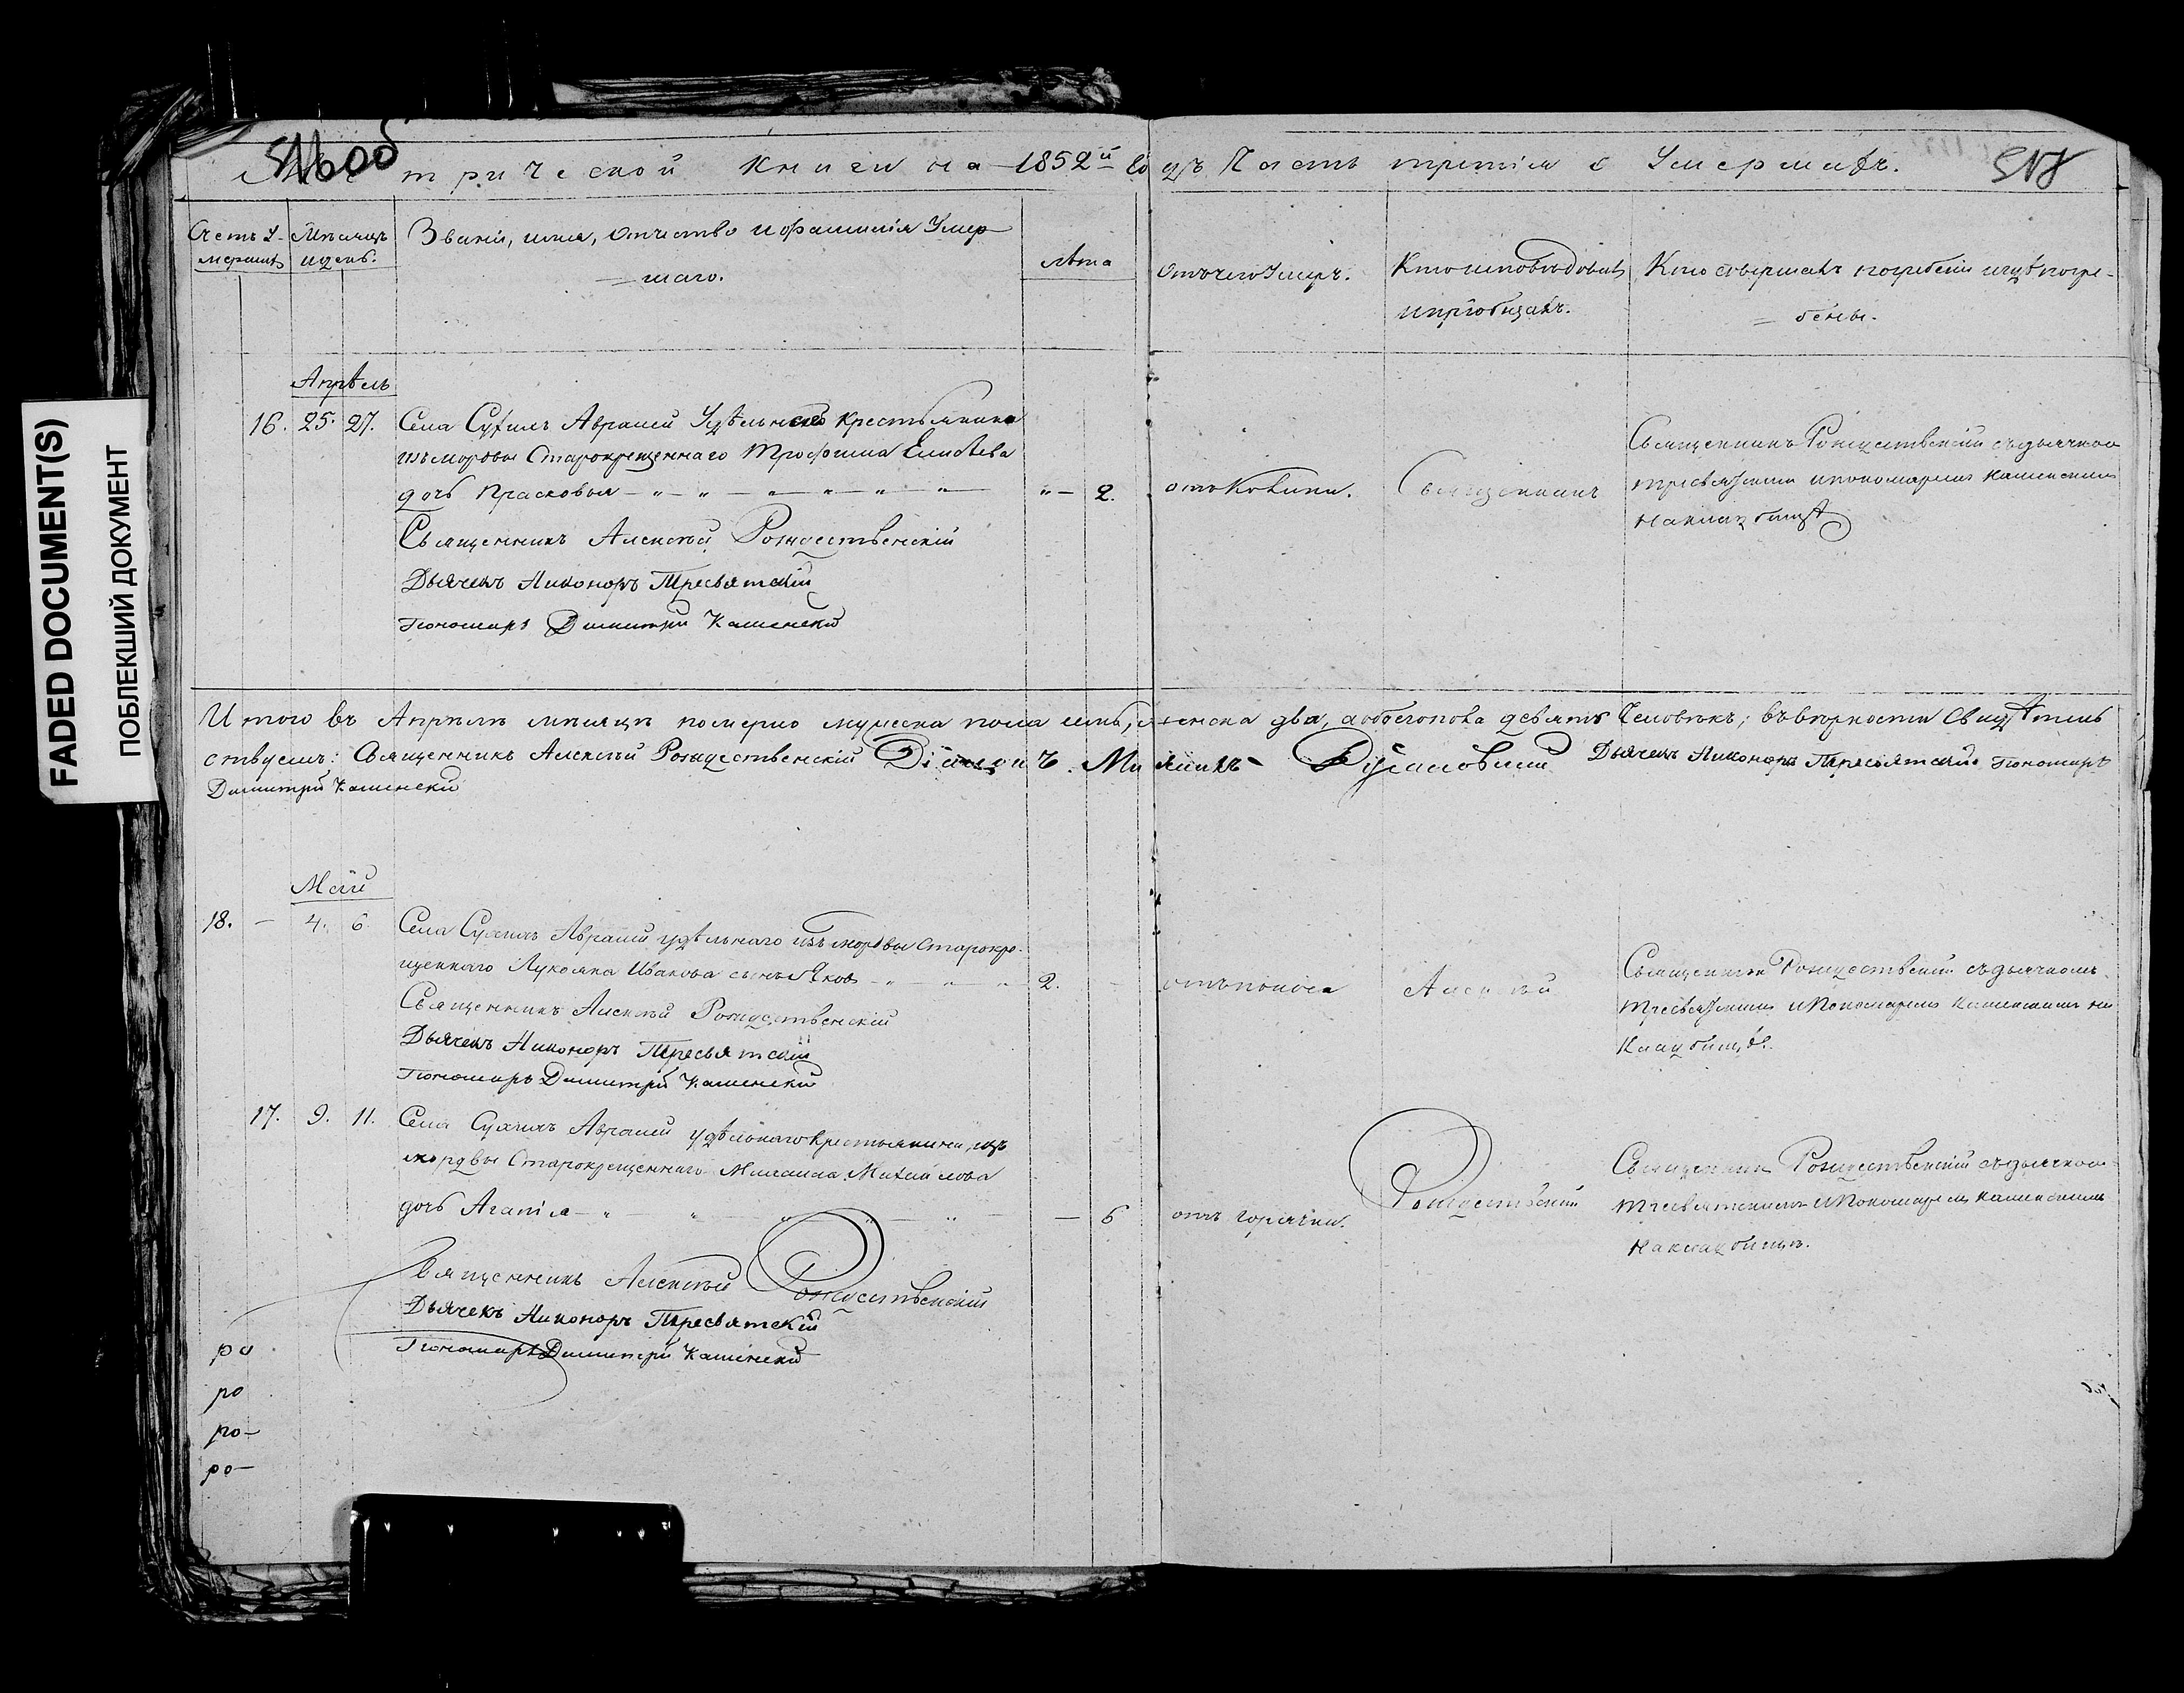 FADED DOCUMENT(S)
ПОБЛЕКШИЙ ДОКУМЕНТ
Метрической книги на 1852й годъ Часть третія о Умершихъ.
518
Счетъ У-
мершихъ
Мѣсяцъ
и день.
Званіе, имя, отчество и фамилія Умер-
шаго.
лѣта
Отъ чего Умеръ.
Кто исповѣдовалъ
и пріобщалъ.
Кто совершалъ погребеніе и гдѣ погре-
бены.
Апрѣль
16. 25. 27. Села Сухихъ Авралей Удѣльнаго крестьянина
изъ мордвы Старокрещеннаго Трофима Елисѣева
дочь Прасковья — 2.
Священникъ Алексѣй Рождественскій
Дьячекъ Никоноръ Тресвятскій
Пономарь Димитрій Каменскій
Священникъ
Священникъ Рождественскій съ дьячкомъ
Тресвятскимъ и пономаремъ Каменскимъ
На кладбищѣ
Итого въ Апрѣлѣ мѣсяцѣ померло мужеска пола семь, женска два, а обоего пола девять Человѣкъ; въ вѣрности Свидѣтель
ствуемъ: Священникъ Алексѣй Рождественскій Діаконъ Дьячекъ Никоноръ Тресвятскій Пономарь
Димитрій Каменскій
Май
18. — 4. 6. Села Сухихъ Авралей удѣльнаго изъ мордвы Старокре-
щеннаго Лукояна Иванова сынъ Яковъ 2.
Священникъ Алексѣй Рождественскій
Дьячекъ Никоноръ Тресвятскій
Пономарь Димитрій Каменскій
отъ поноса
Алексѣй
Священникъ Рождественскій съ дьячкомъ
Тресвятскимъ и Пономаремъ Каменскимъ на
Кладбищѣ.
17. 9. 11. Села Сухихъ Авралей удѣльнаго крестьянина, изъ
мордвы Старокрещеннаго Михайлова
дочь Агапія — 6
отъ горячки.
Рождественскій
Священникъ Рождественскій съ дьячкомъ
Тресвятскимъ и Пономаремъ Каменскимъ
На кладбищѣ.
Священникъ Алексѣй Рождественскій
Дьячекъ Никоноръ Тресвятскій
Пономарь Димитрій Каменскій
ро
ро
ро
ро